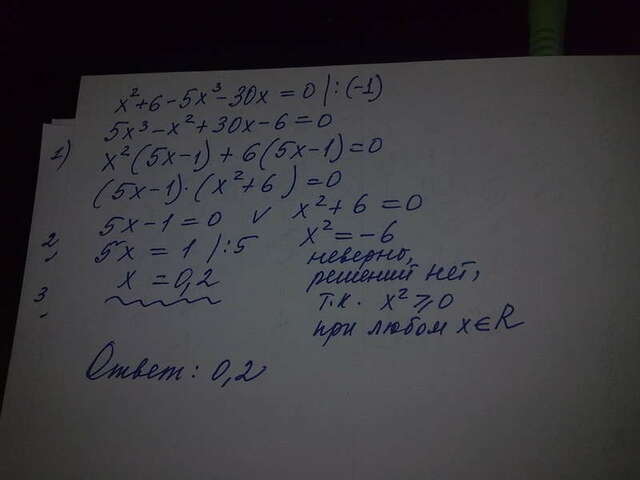 x²+6-5x³-30x=0 |:(-1)
5x³-x²+30x-6=0
1) x²(5x-1)+6(5x-1)=0
(5x-1)·(x²+6)=0
5x-1=0 v x²+6=0
2, 5x=1 |:5 x²=-6
неверно,
3 x=0,2 решений нет,
т.к. x²⩾0
при любом x∈R
Ответ: 0,2